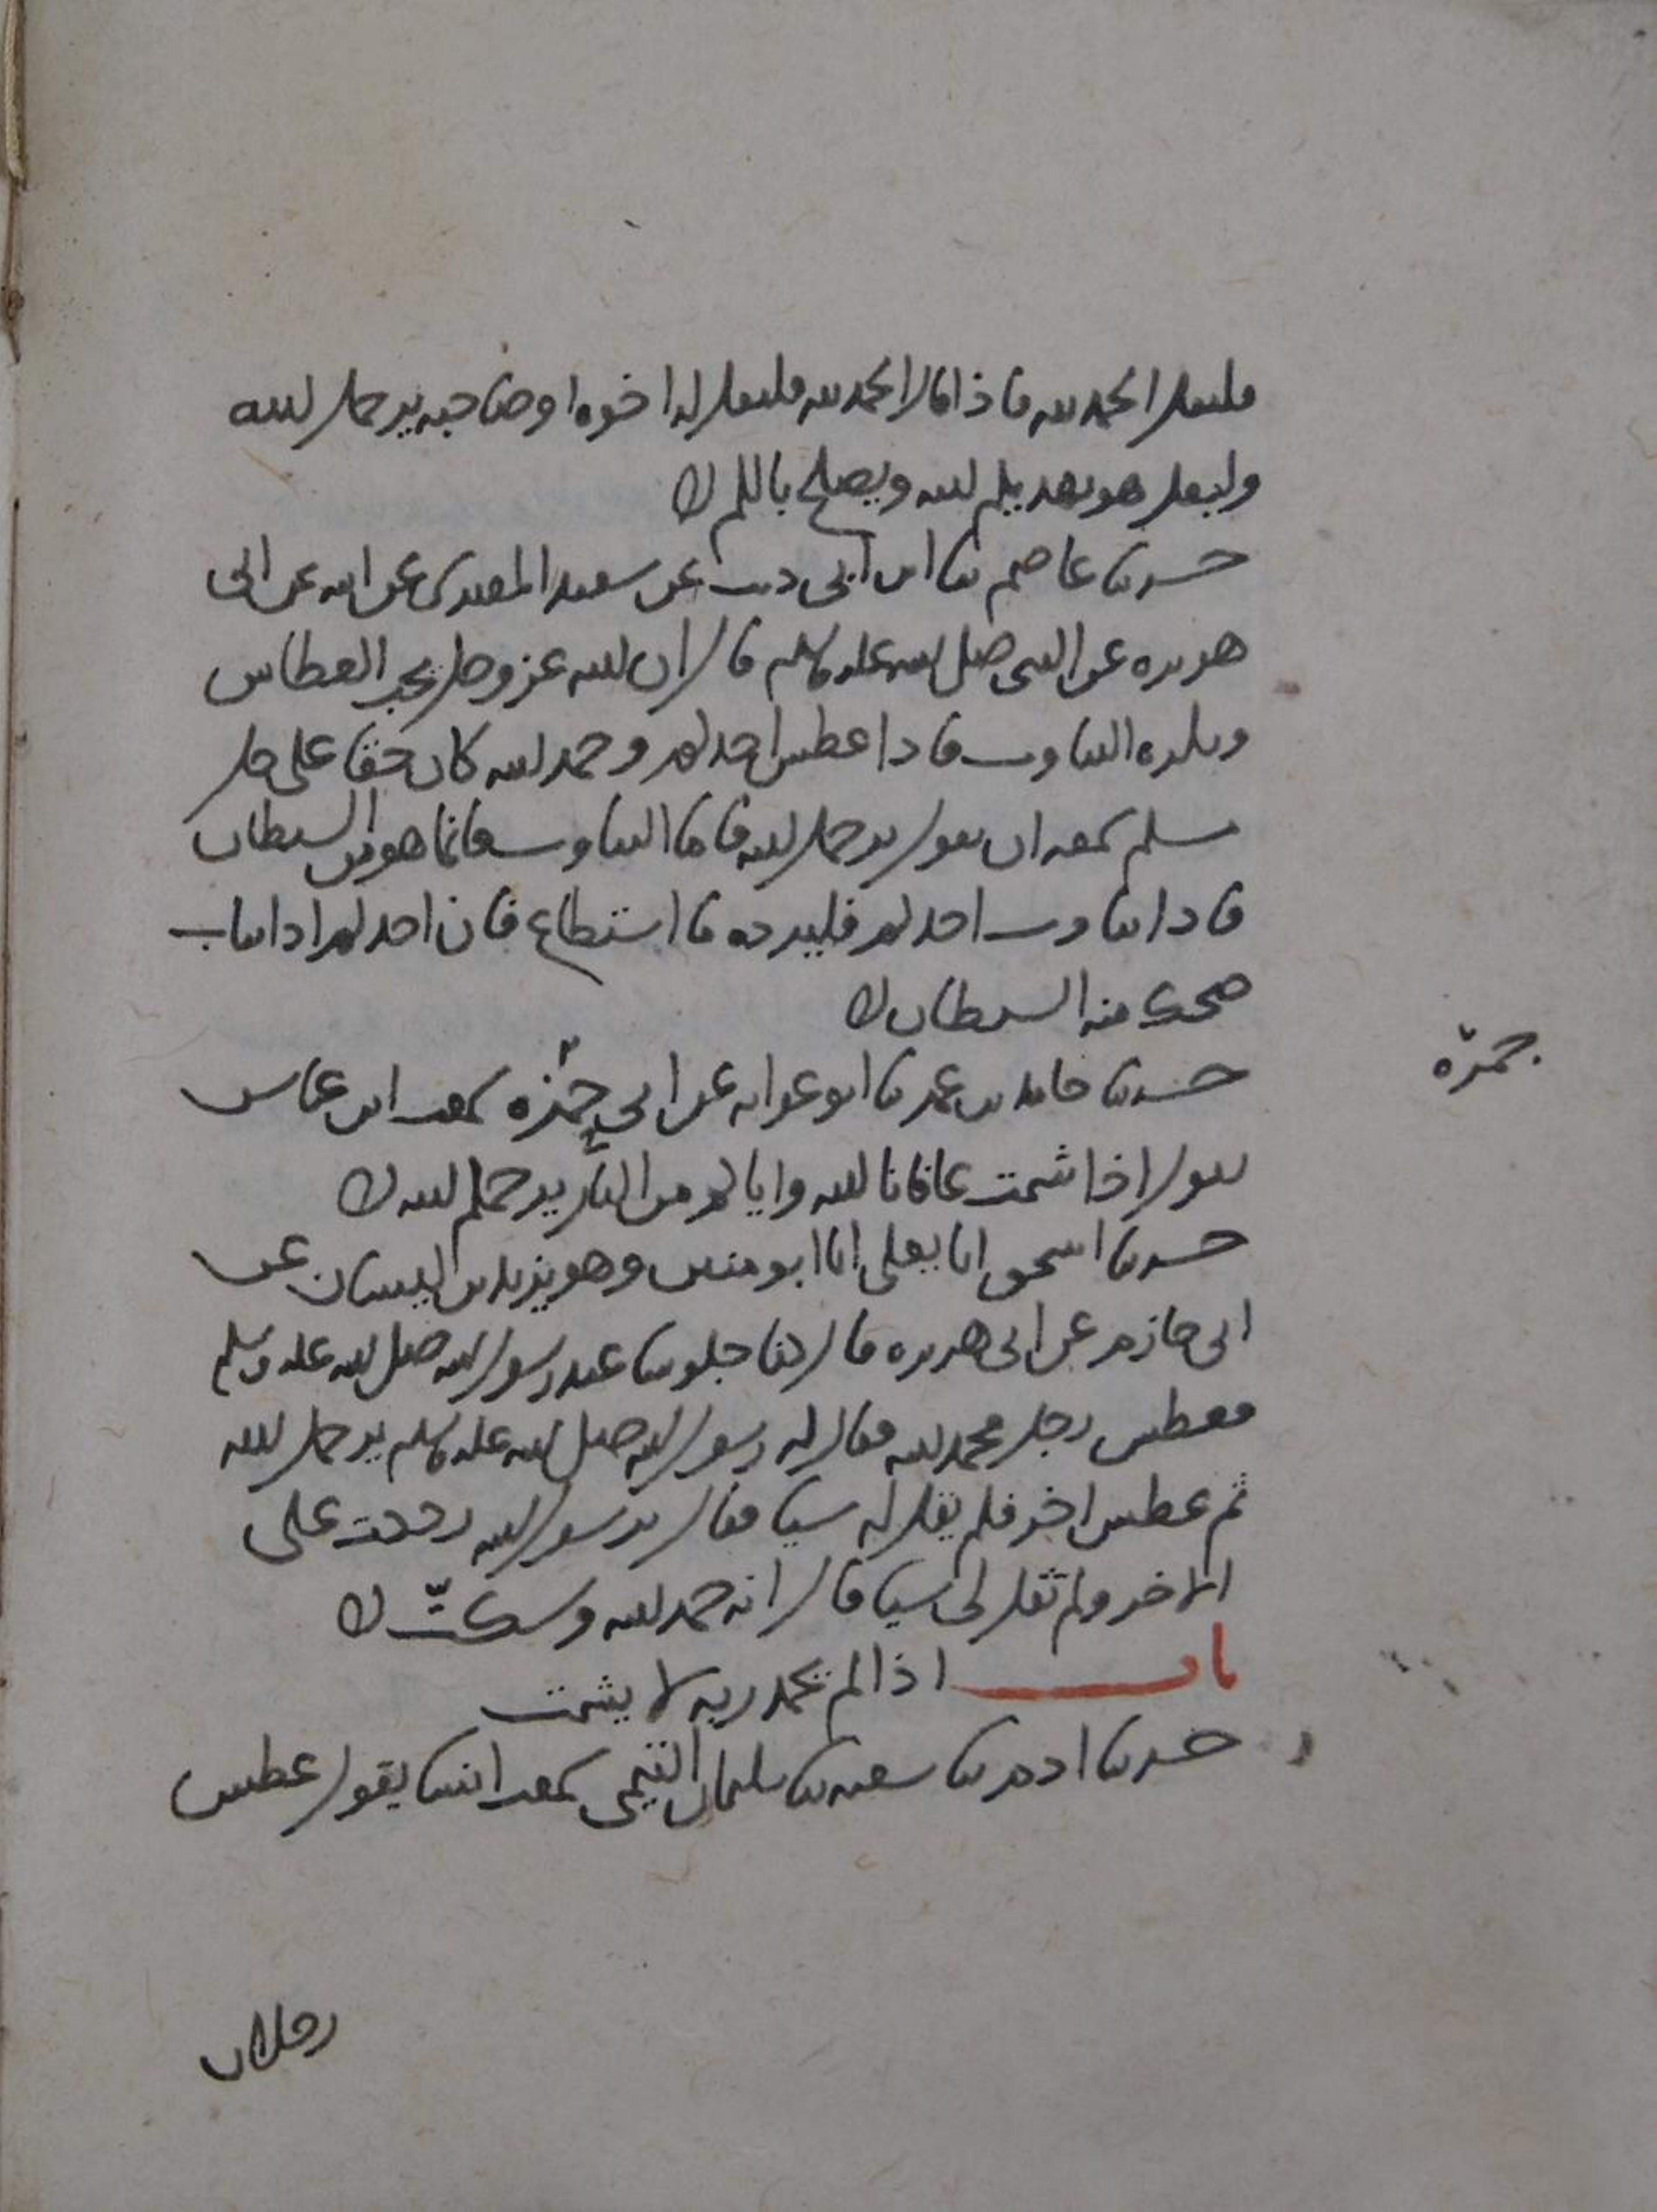 فليقل الحمد لله فاذا قال الحمد لله فليقل له اخوه او صاحبه يرحمك الله
وليقل هو يهديكم الله ويصلح بالكم
حدثنا عاصم ثنا ابن ابي ذئب عن سعيد المقبري عن ابيه عن ابي
هريره عن النبي صلى الله عليه وسلم قال ان الله عز وجل يحب العطاس
ويكره التثاوب فاذا عطس احدكم وحمد الله كان حقا على كل
مسلم سمعه ان يقول يرحمك الله فاما التثاوب فانما هو من الشيطان
فاذا تثاوب احدكم فليرده ما استطاع فان احدكم اذا تثاب
ضحك منه الشيطان
جمرة
حدثنا حامد بن عمر ثنا ابو عوانه عن ابي جمرة سمعت ابن عباس
يقول اذا شمت عافانا الله واياكم من النار يرحمكم الله
حدثنا اسحق انا يعلى انا ابو منين وهو يزيد بن كيسان عن
ابي حازم عن ابي هريره قال كنا جلوسا عند رسول الله صلى الله عليه وسلم
فعطس رجل فحمد الله فقال له رسول الله صلى الله عليه وسلم يرحمك الله
ثم عطس اخر فلم يقل له شيا فقال يرسول الله رددت على
الاخر ولم تقل لي شيا قال انه حمد الله وسكتّ
باب اذا لم يحمد ربه لا يشمت
حدثنا ادم ثنا شعبه ثنا سليمان التيمي سمعت انسا يقول عطس
رجلان